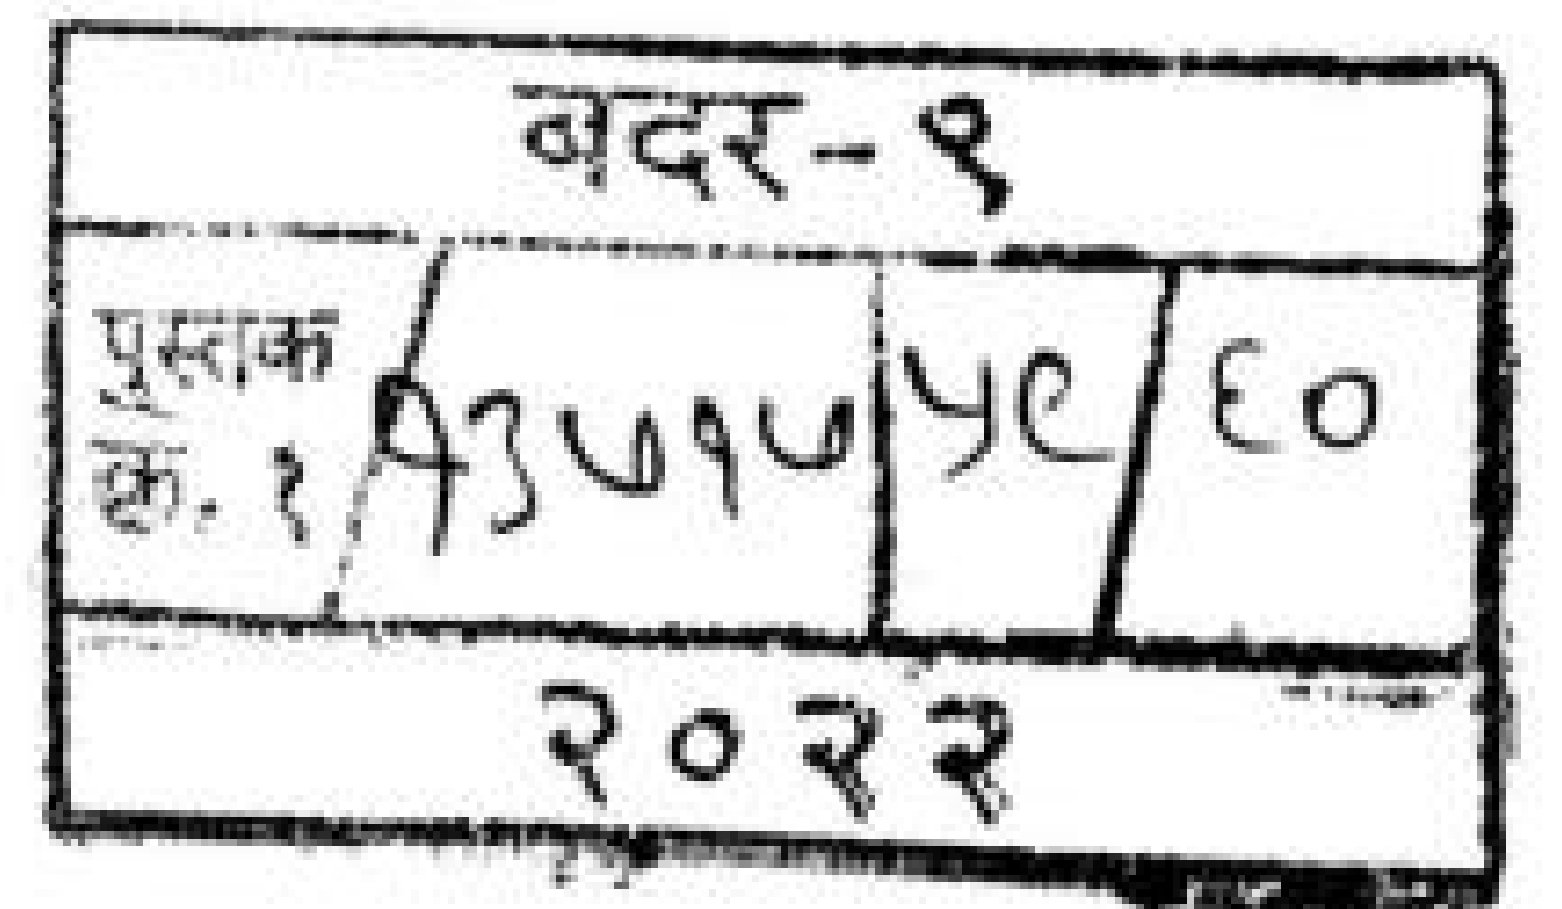 बदर-९
पुस्तक
क्र. १ १३७१७ ५९ ६०
२०२२